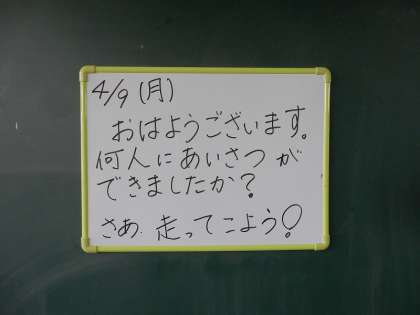 4/9(月)
おはようございます。
何人にあいさつが
できましたか?
さあ.走ってこよう!